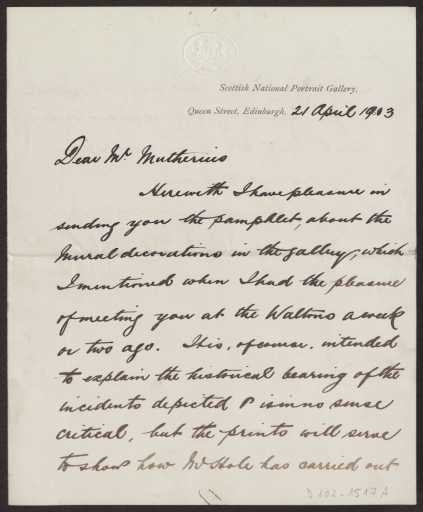 Scottish National Portrait Gallery,
Queen Street, Edinburgh. 21 April 1903
Dear Mr Muthesius
Herewith I have pleasure in
sending you the pamphlet, about the
mural decorations in the gallery, which
I mentioned when I had the pleasure
of meeting you at the Waltons a week
or two ago. It is, of course, intended
to explain the historical bearing of the
incidents depicted & is in no sense
critical, but the prints will serve
to show how Mr Hole has carried out
D 102-1517 A